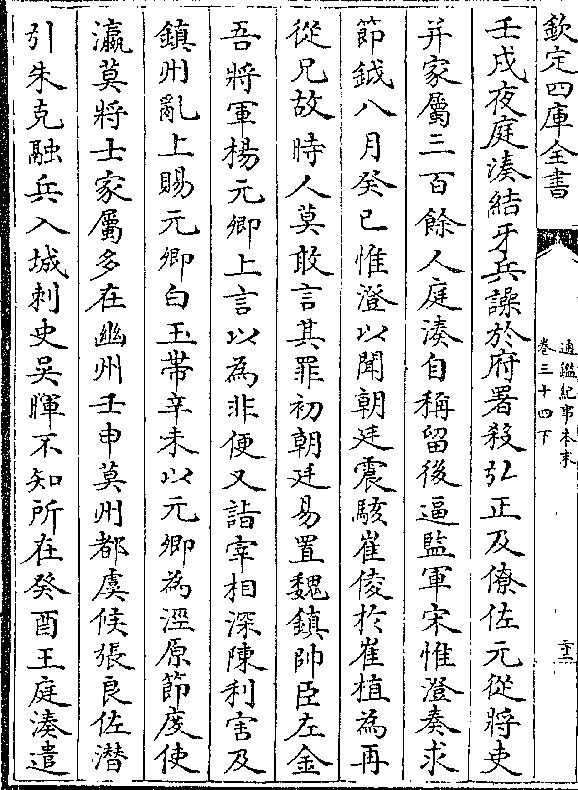 欽定四庫全書
通鑑紀事本末
卷三十四下
二十二
壬戌夜庭湊結牙兵譟於府署殺弘正及僚佐元從將吏
并家屬三百餘人庭湊自稱留後逼監軍宋惟澄奏求
節鉞八月癸巳惟澄以聞朝廷震駭崔倰於崔植為再
從兄故時人莫敢言其罪初朝廷易置魏鎮帥臣左金
吾將軍楊元卿上言以為非便又詣宰相深陳利害及
鎮州亂上賜元卿白玉帶辛未以元卿為涇原節度使
瀛莫將士家屬多在幽州壬申莫州都虞候張良佐潛
引朱克融兵入城刺史吳暉不知所在癸酉王庭湊遣